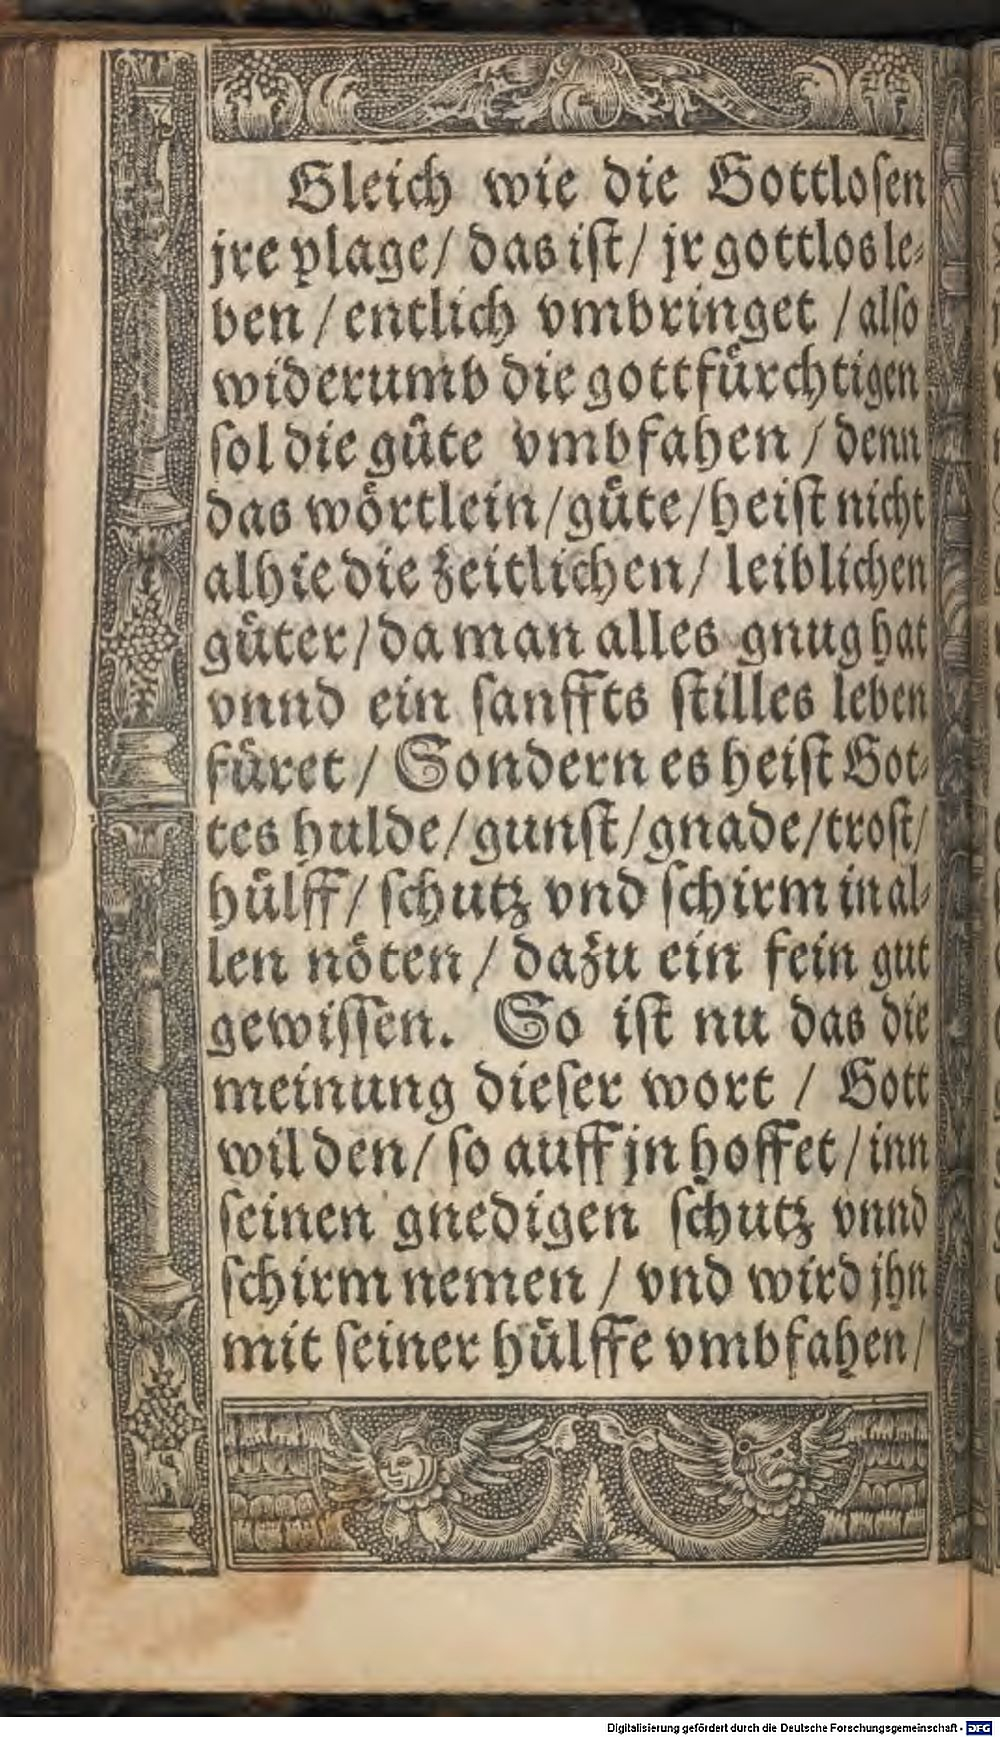 Gleich wie die Gottloſen
jre plage/ das iſt/ jr gottlos le⸗
ben / entlich vmbringet / alſo
widerumb die gottfuͤrchtigen
ſol die guͤte vmbfahen / denn
das woͤrtlein/guͤte/heiſt nicht
alhie die zeitlichen/ leiblichen
guͤter/da man alles gnug hat
vnnd ein ſanffts ſtilles leben
fuͤret / Sondern es heiſt Got⸗
tes hulde/gunſt/gnade/troſt/
huͤlff/ ſchutz vnd ſchirm in al⸗
len noͤten / dazu ein fein gut
gewiſſen. So iſt nu das die
meinung dieſer wort / Gott
wil den/ ſo auff jn hoffet / inn
ſeinen gnedigen ſchutz vnnd
ſchirm nemen / vnd wird jhn
mit ſeiner huͤlffe vmbfahen/
Digitalisierung gefördert durch die Deutsche Forschungsgemeinschaft - DFG